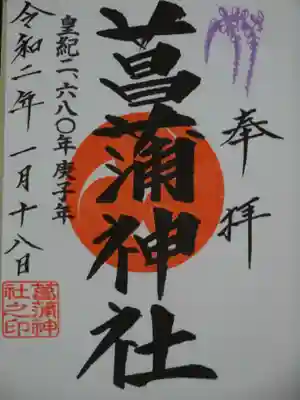 奉拝
菖蒲神社
皇紀二、六八〇年庚子年
令和二年一月十八日
菖蒲神
社之印